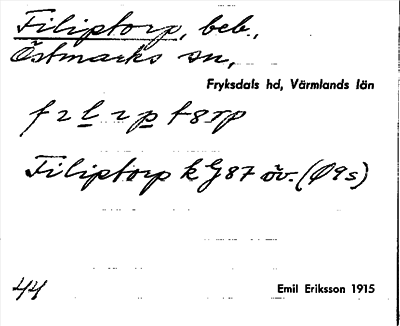 Filiptorp, beb.,
Östmarks sn,
Fryksdals hd, Värmlands län
Filiptorp k G87 öv. (Ø9s)
44
Emil Eriksson 1915